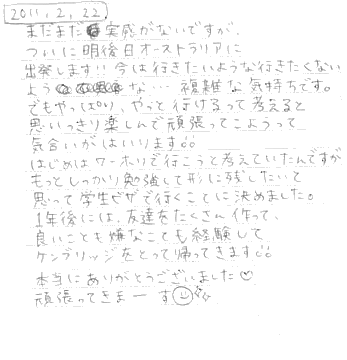 2011, 2, 22
まだまだ実感がないですが、
ついに明後日オーストラリアに
出発します!! 今は行きたいような行きたくない
ような… 複雑な気持ちです。
でもやっぱり、やっと行けるって考えると
思いっきり楽しんで頑張ってこようって
気合いがはいります!!
はじめはワーホリで行こうと考えていたんですが
もっとしっかり勉強して形に残したいと
思って学生ビザで行くことに決めました。
1年後には、友達をたくさん作って、
良いことも嫌なことも経験して
ケンブリッジをとって帰ってきます!!
本当にありがとうございました♡
頑張ってきまーす☺